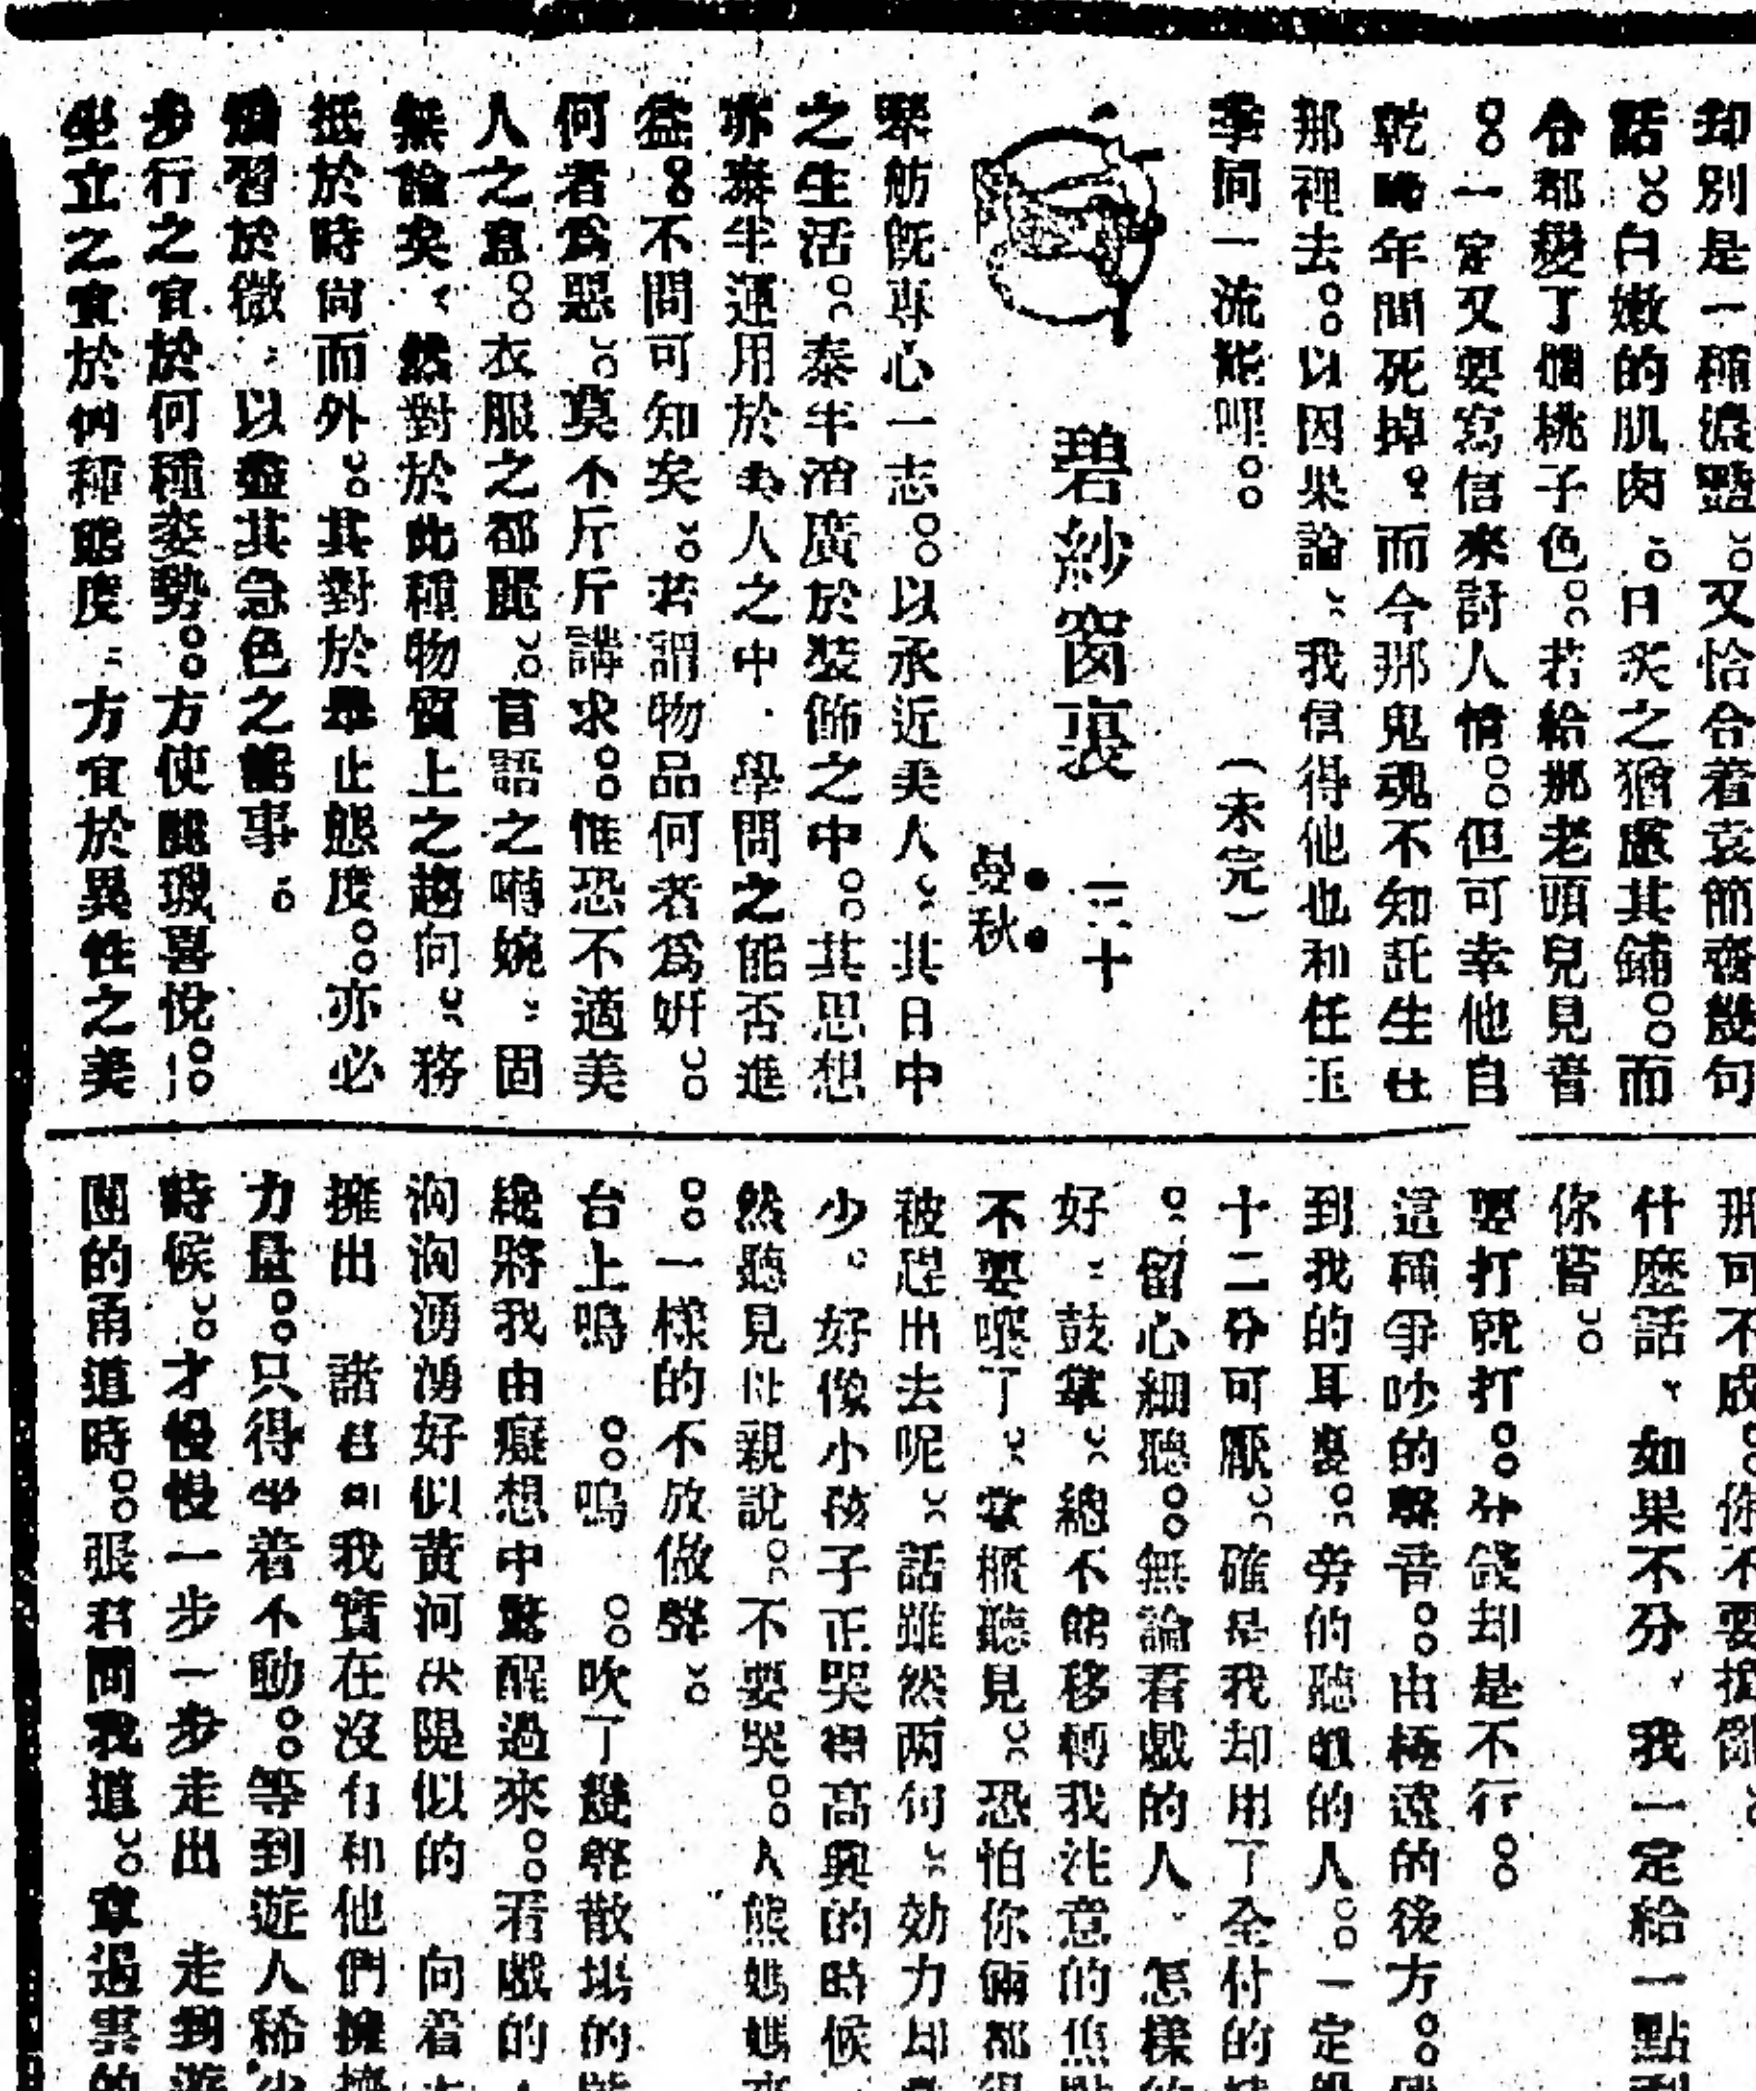 却別是一種濃豔。又恰合着袁簡齋幾句
話。白嫩的肌肉。日炙之猶處其鋪。而
令都變了爛桃子色。若給那老頭兒見着
。一定又要寫信來討人情。但可幸他自
乾隆年間死掉。而今那鬼魂不知託生在
那裡去。以因果論、我信得他也和任玉
李同一流熊呷。
（未完）
碧紗窗裏 三十
曼秋
翠舫旣專心一志。以承近美人、其日中
之生活。泰半消廣於裝飾之中。其思想
亦舞半運用於美人之中．學問之能否進
益。不問可知矣。若謂物品何者爲妍。
何者爲惡。莫不斤斤講求。惟恐不適美
人之意。衣服之都麗。言語之囀婉、固
無論矣、然對於此種物質上之趨向、務
抵於時尙而外。其對於舉止態度。亦必
習於微、以盡其急色之能事。
步行之宜於何種姿勢。方使醜玻喜悅。
坐立之宜於何種態度、方宜於異性之美
那可不成。你不要搗鬼。
什麼話、如果不分、我一定給一點
你嘗。
要打就打。分錢却是不行。
這種爭吵的聲音。由極遠的後方。
到我的耳裏。旁的聽戲的人。一定
十二分可厭。確是我却用了全付的
。留心細聽。無論看戲的人、怎樣
好、鼓掌、總不能移轉我注意的焦點
不要嚷了、掌櫃聽見。恐怕你倆都得
被趕出去呢、話雖然两句、効力却
少。好像小孩子正哭得高興的時候
然聽見母親說。不要哭。人熊媽媽來
。一樣的不放做聲。
台上嗚 。嗚 。吹了幾聲散場的
纔將我由癡想中驚醒過來。看戲的
洶洶湧湧好似黃河決隄似的 向着
擁出 諸君 我實在沒有和他們擁擠
力量。只得坐着不動。等到遊人稀少
時候。才慢慢一步一步走出 走到遊
園的甬道時。張君問我道。章遏雲的